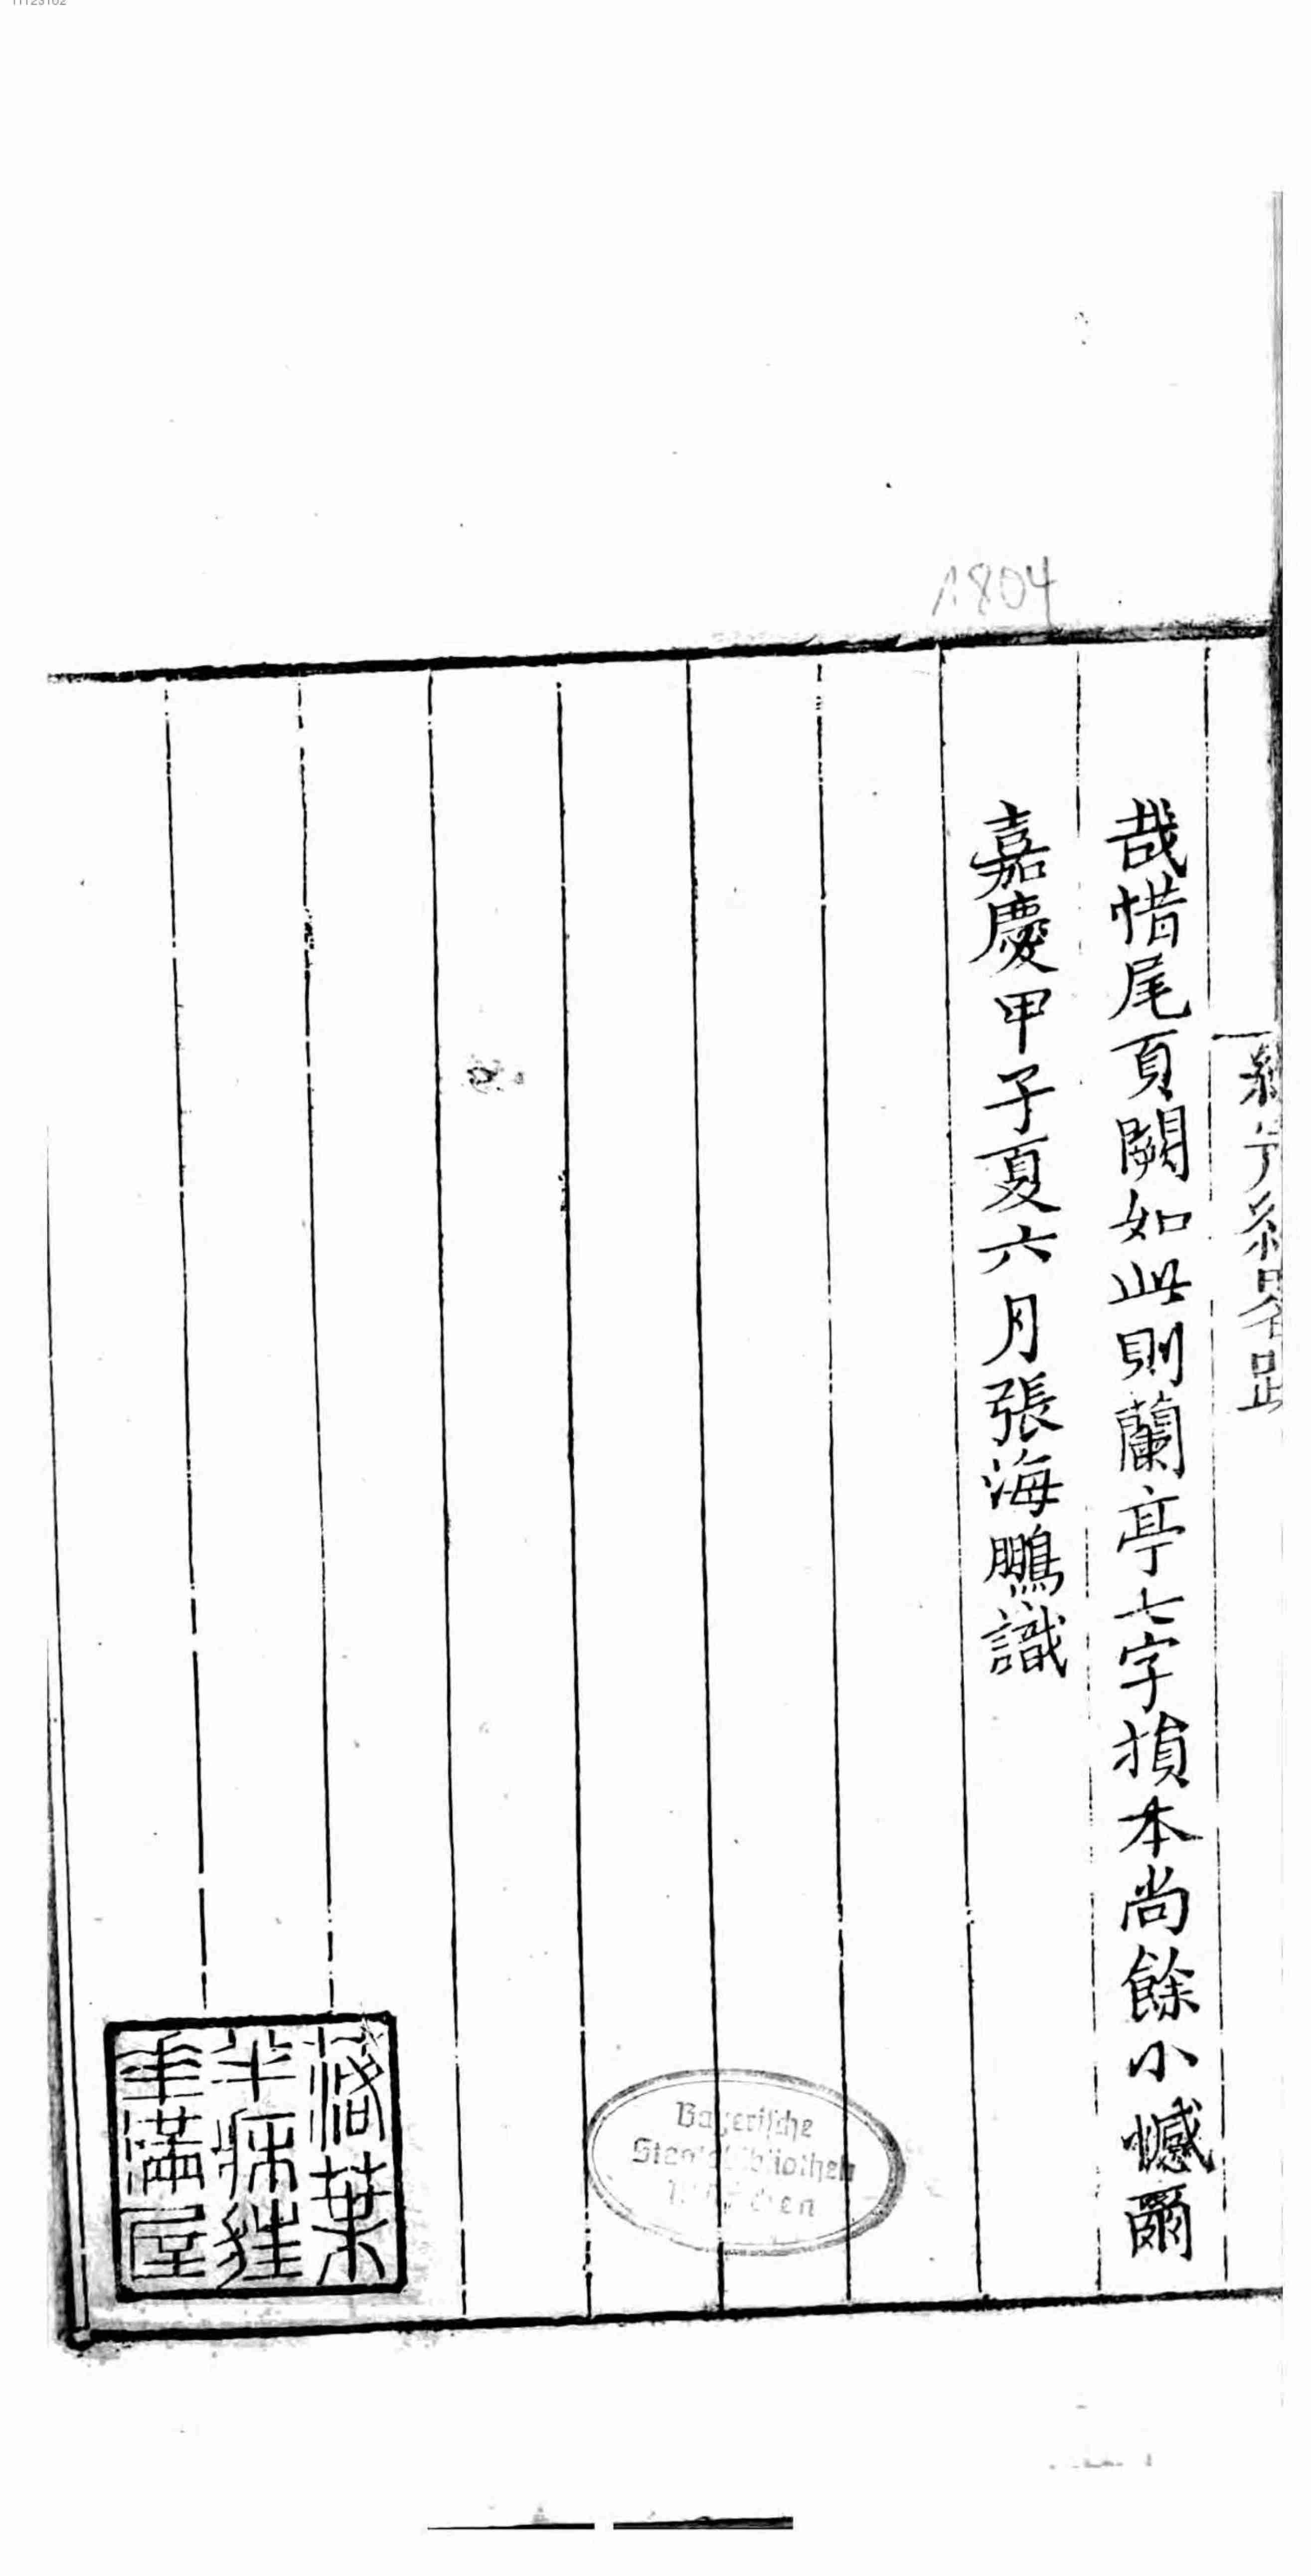 1804
哉惜尾頁闕如此則蘭亭七字損本尚餘小憾爾
嘉慶甲子夏六月張海鵬識
Bayerische
Staatsbibliothek
München
落葉
半牀狂
華滿屋